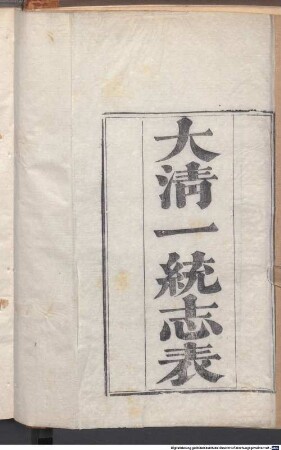 大清一統志表